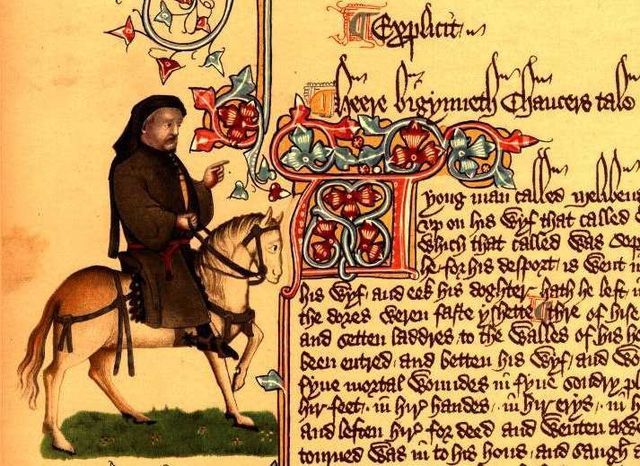 Explicit
Heere bigynneth Chaucers tale
A yong man called melibeu
vp on his Wyf that called
Which that called Was Sop
he for his desport is Went in
his Wyf and eek his doghter hath he left in
the dores Weren faste yshette Thre of hise
and setten laddres to the Walles of his h
been entred and betten his Wyf and Wo
fyue mortal Woundes in fyue sondry p
hir feet in hir handes in hir erys in h
and leften hir for deed and Wenten awe
tourned Was in to his hous and saugh